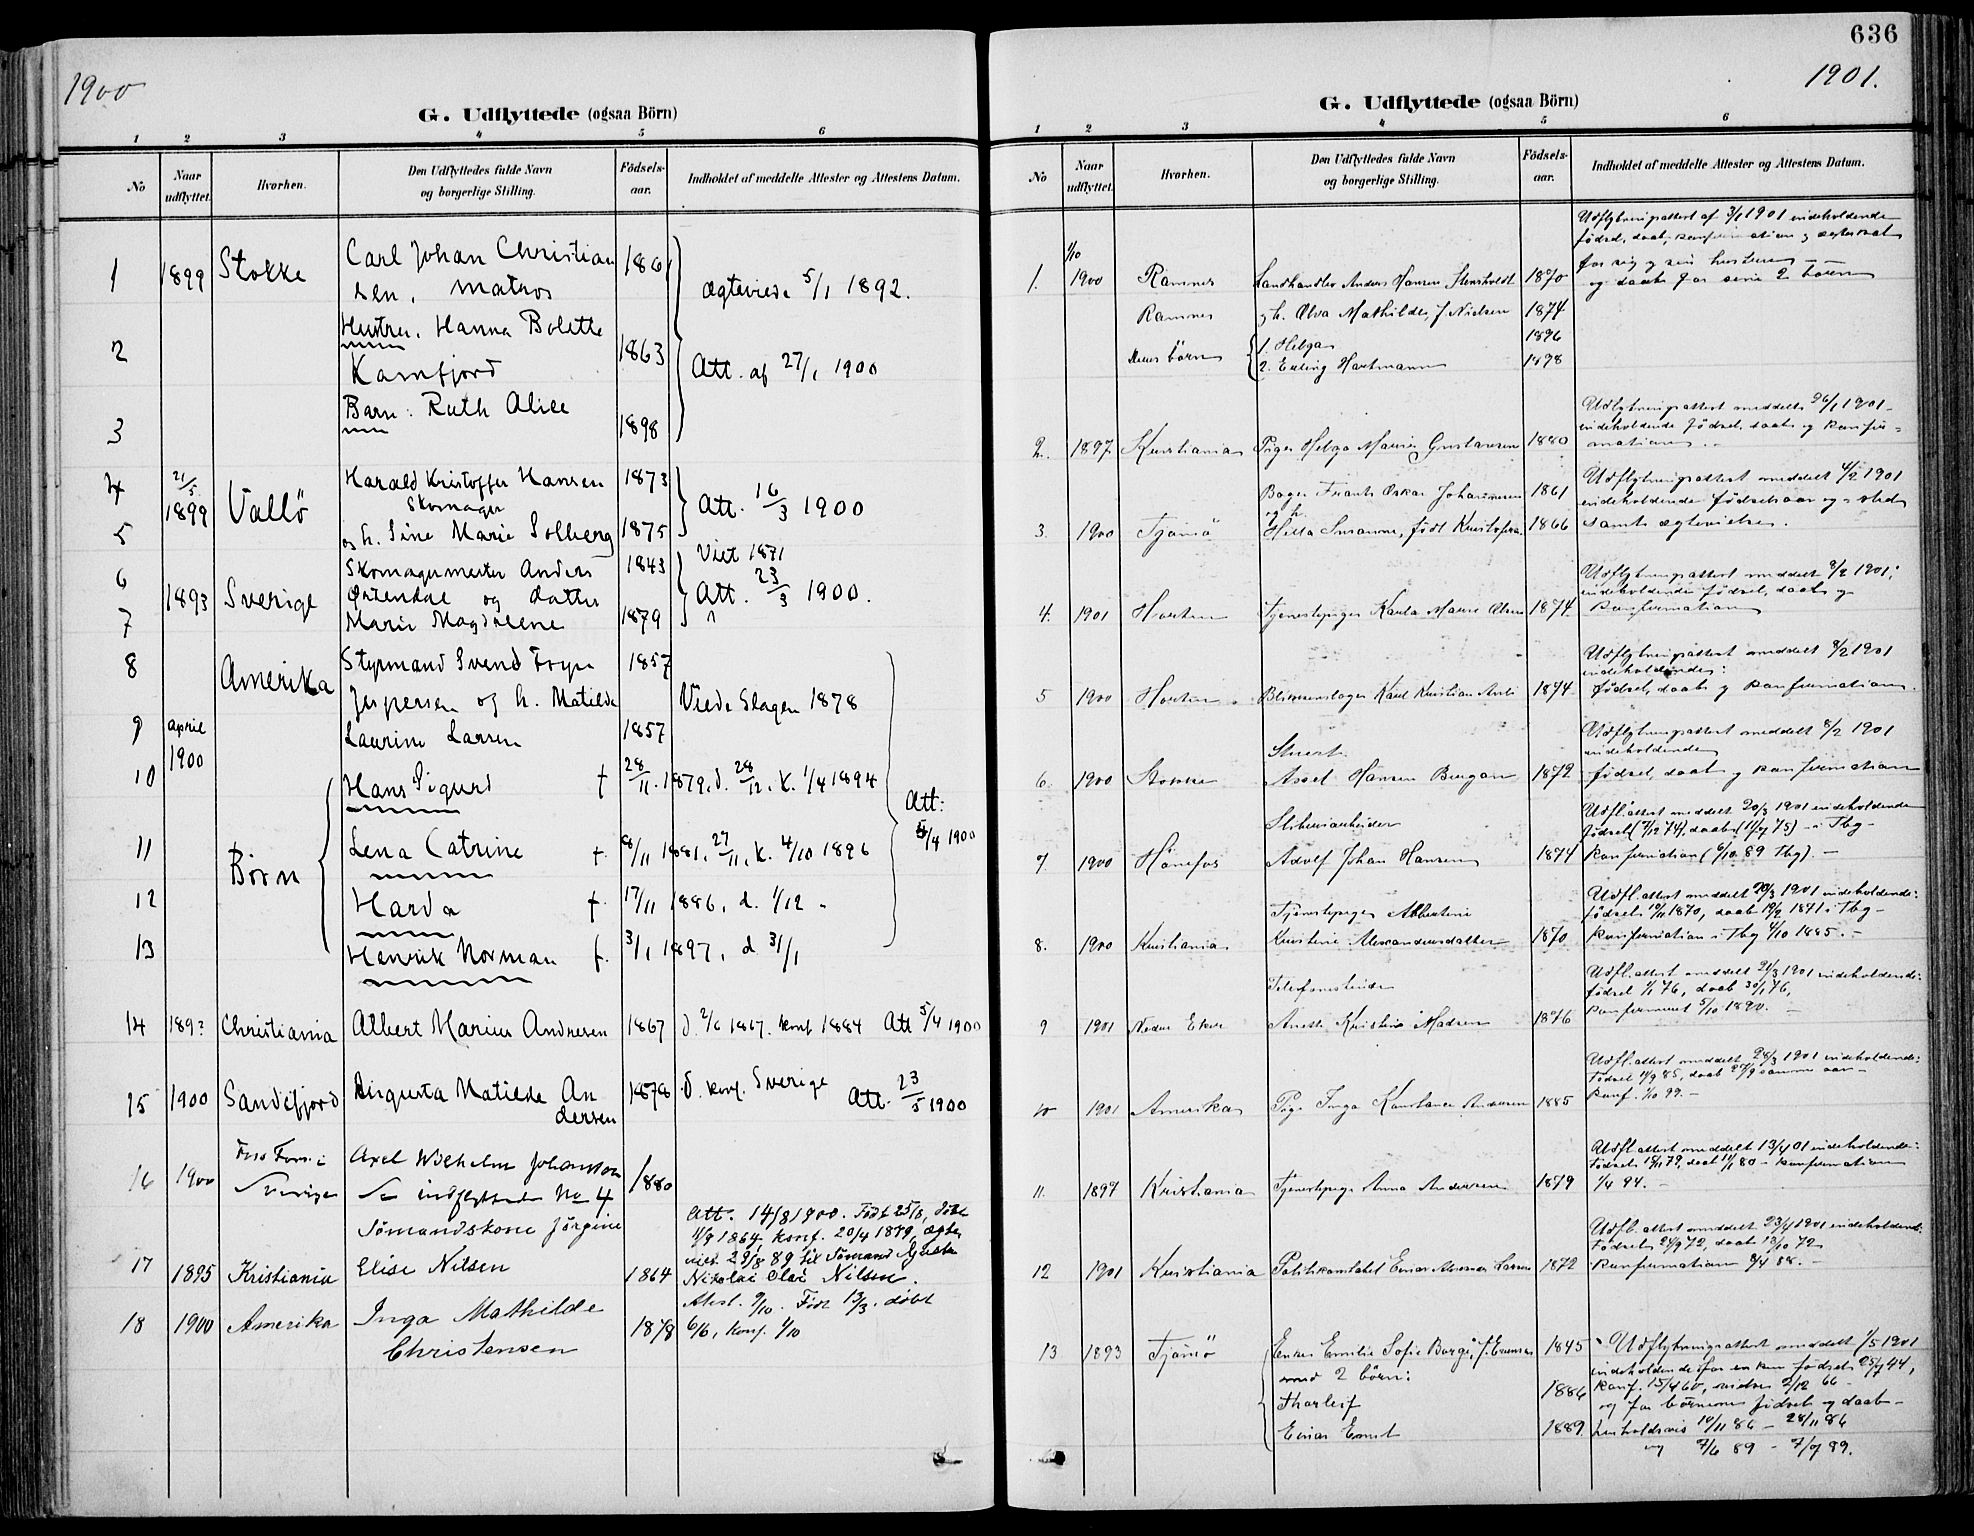 1900
G. Udflyttede (ogsaa Börn)
1 2 3 4 5 6
No
Naar udflyttet.
Hvorhen.
Den Udflyttedes fulde Navn og borgerlige Stilling.
Födsels-aar.
Indholdet af meddelte Attester og Attestens Datum.
1 1899 Stokke Carl Johan Christian 1861
sen, matros
Ægteviede 5/1 1892.
Hustru, Hanna Bolette
2 Kamfjord 1863 Att. af 27/1 1900
Barn: Ruth Alice
3 1898
4 21/5 1899 Vallö Harald Kristoffer Hansen 1873
Skomager
Att. 16/3 1900
5 og h. Sine Marie Solberg 1875
Viet 1871
6 Skomagermester Anders 1843
1893 Sverige Östendal og datter Att. 23/3 1900.
7 Marie Magdalene 1879
8 Amerika Styrmand Svend Foyn 1857
Jespersen og h. Matilde Viede Slagen 1878
9 april 1900 Laurine Larsen 1857
10 Hans Sigurd f 28/11. 1879, d. 28/12, K. 1/4 1894
Att: 5/4 1900
11 Börn Lena Catrine f. 8/11 1881, 27/11, K. 4/10 1896
12 Harda f. 17/11 1886, d. 1/12
13 Henrik Norman f. 3/1 1897, d 31/1
14 189? Christiania Albert Marius Andresen 1867 d. 2/6 1867. konf 1884 Att 5/4 1900
15 1900 Sandefjord Augusta Matilde An 1878 d. konf. Sverige
dersen Att. 23/5 1900
16 1900 Sverige Axel Wilhelm Johansson 1880
Se indflyttede No 4
Sömandskone Jörgine Att. 14/8 1900. Födt 25/8, döbt
11/9 1864, konf. 20/4 1879, ægte
17 1895 Kristiania Elise Nilsen 1864 viet 29/8 89 til Sömand
Nikolai Olai Nilsen.
18 1900 Amerika Inga Mathilde 1878 Attest. 9/10. Födt 13/3. döbt
Christensen 6/6, konf. 1/10
636
1901.
G. Udflyttede (ogsaa Börn)
1 2 3 4 5 6
No
Naar udflyttet.
Hvorhen.
Den Udflyttedes fulde Navn og borgerlige Stilling.
Födsels-aar.
Indholdet af meddelte Attester og Attestens Datum.
Udflytningsattest af 3/1 1901 indeholdende
födsel, daab, konfirmation og ægteskab
for sig og sin hustru
1. 1/10 1900 Ramnes Landhandler Anders Hansen Stensholdt 1870 og daab for sine 2 börn
Ramnes og h. Alva Mathilde, f. Nielsen 1874
Deres börn 1. Helga 1896
2. Erling Hartmann 1898
Udflytningsattest meddelt 26/1 1901
indeholdende födsel, daab og konfir-
2. 1897 Kristiania Pige Helga Marie Gustavsen 1880 mation.
Udflytningsattest meddelt 4/2 1901
Bager Frants Oskar Johannessen 1861 indeholdende födselsaar og sted
og h.
3. 1900 Tjömö Hilla Susanne, födt Kristofersen 1866 samt ægtevielse.
Udflytningsattest meddelt 8/2 1901
indeholdende födsel, daab og
4. 1901 Horten Tjenestepige Karla Marie Olsen 1874 konfirmation
Udflytningsattest meddelt 8/2 1901
indeholdende:
5 1900 Horten Blikkenslager Karl Kristian 1874 födsel, daab og konfirmation.
Udflytningsattest meddelt 8/2 1901
Stuert. indeholdende
6. 1900 Stokke Axel Hansen Bergan 1872 födsel, daab og konfirmation
Udfl. attest meddelt 20/3 1901 indeholdende
Sliberiarbeider födsel (7/12 74), daab (11/4 75) - i Tbg -
7. 1900 Hönefos Adolf Johan Hansen 1874 konfirmation (6/10 89 Tbg). -
Udfl. attest meddelt 20/3 1901 indeholdende:
Tjenestepige Albertine födsel 19/11 1870, daab 19/2 1871 i Tbg -
8. 1900 Kristiania Kristine Alexandersdatter 1870 konfirmation i Tbg 4/10 1885. -
Udfl. attest meddelt 21/3 1901 indeholdende:
Telefonistinde födsel 1/1 76, daab 30/1 76,
9 1901 Nedre Eker Anette Kristine Madsen 1876 konfirmeret 5/10 1890. -
Udfl. attest meddelt 28/3 1901 indeholdende:
Födsel 11/9 85, daab 27/9 samme aar -
10 1901 Amerika Pige Inga Konstance Andersen 1885 konf. 1/10 99. -
Udfl. attest meddelt 13/4 01 indeholdende:
Födsel 18/11 79, daab 11/1 80 - konfirmation
11. 1897 Kristiania Tjenestepige Anna Andersen 1879 1/4 94. -
Udfl. attest meddelt 23/4 1901 indeholdende:
Födsel 24/9 72, daab 13/10 72
12 1901 Kristiania Politikonstabel Einar Larsen 1872 konfirmation 8/4 88. -
13 1893 Tjömö Enken Emilie Sofie Borge, f. Evensen 1845 Udflytningsattest meddelt 1/5 1901
med 2 börn: indeholdende for enken födsel 25/7 44,
1886 konf. 15/4 60, vielse 2/12 66 -
Thorleif og for börnene födsel og daab -
Einar Ernst 1889 henholdsvis 10/11 86 - 28/11 86
og 7/6 89 - 7/7 89.